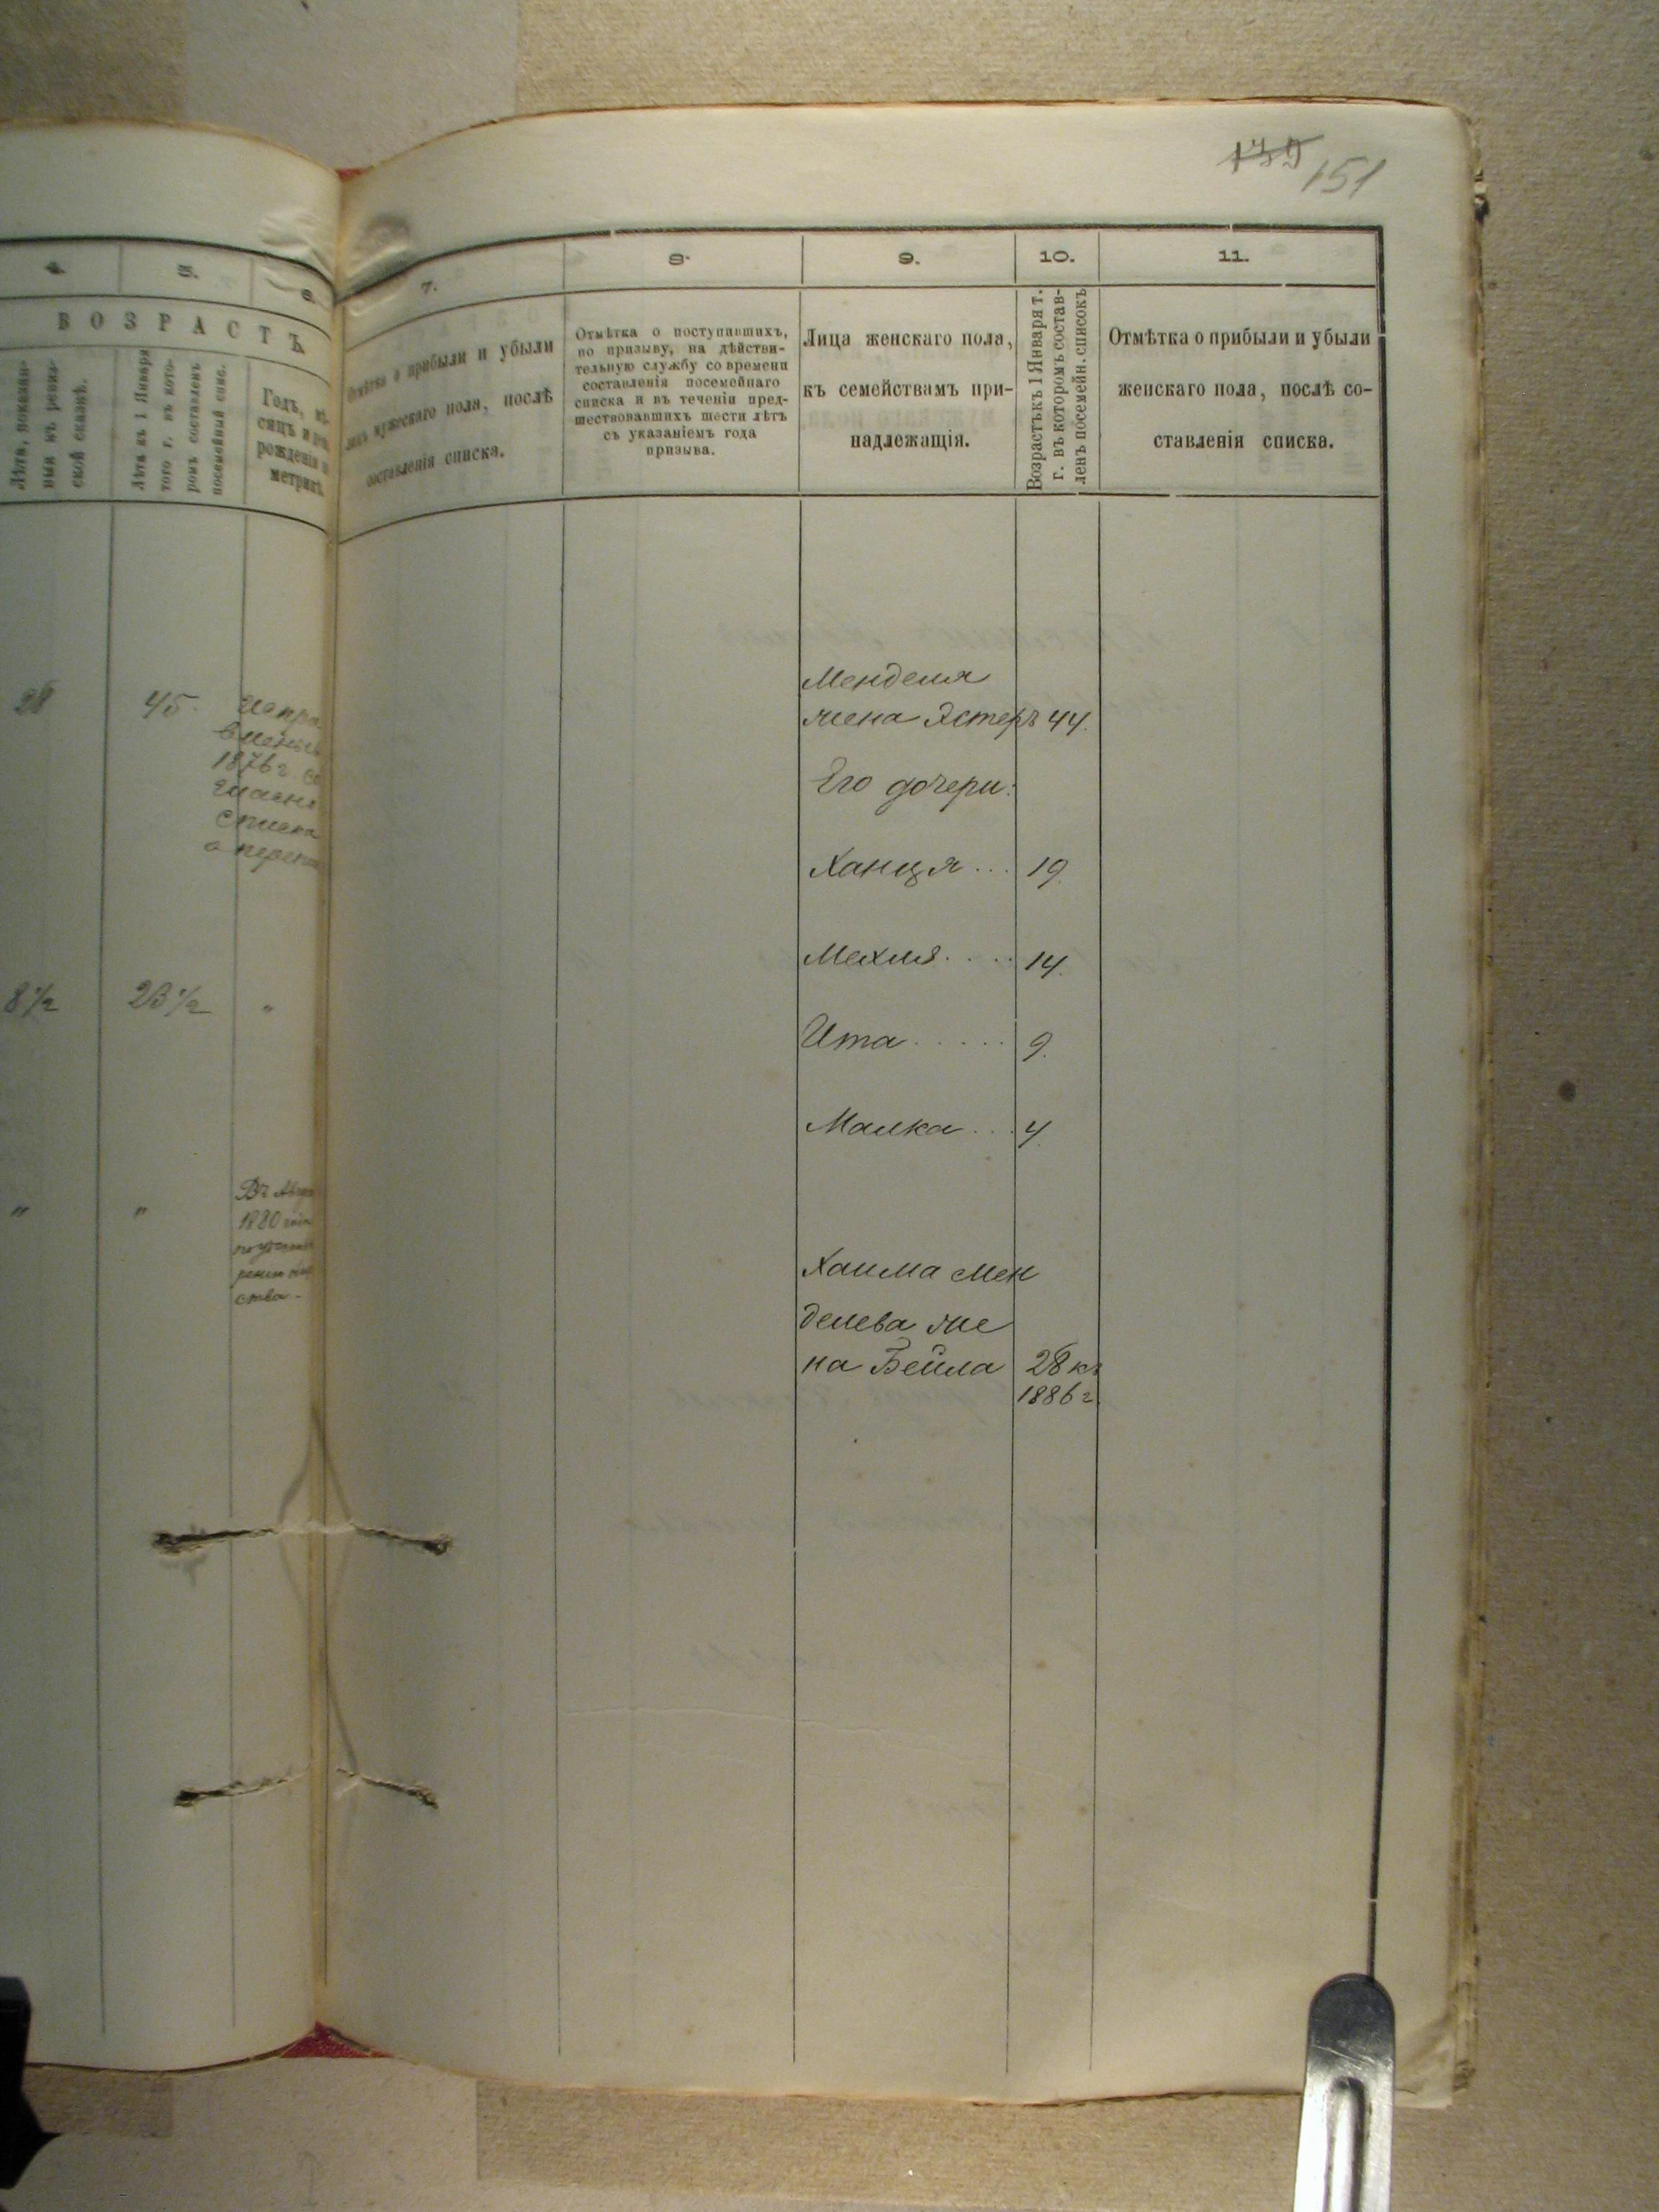 139 151
4.
5.
6.
ВОЗРАСТЪ
Лѣта къ 1 Января
того г. въ кото-
ромъ составленъ
посемейный спис.
Годъ, мѣ-
сяцъ и
рожденія
метрик.
28
45.
1876 г.
8 1/2
23 1/2
"
"
"
1880
7.
Отмѣтка о прибыли и убыли
лицъ мужескаго пола, послѣ
составленія списка.
8.
Отмѣтка о поступившихъ,
по призыву, на дѣйстви-
тельную службу со времени
составленія посемейнаго
списка и въ теченіи пред-
шествовавшихъ шести лѣтъ
съ указаніемъ года
призыва.
9.
Лица женскаго пола,
къ семействамъ при-
надлежащія.
10.
Возрастъ къ 1 Января т.
г. въ которомъ состав-
ленъ посемейн. списокъ
11.
Отмѣтка о прибыли и убыли
женскаго пола, послѣ со-
ставленія списка.
Менделя
жена Эстеръ 44.
Его дочери:
Ханця... 19.
Мехля.... 14.
Ита..... 9.
Малка... 4.
Хаима Мен
делева же
на Бейла 28 къ
1886 г.